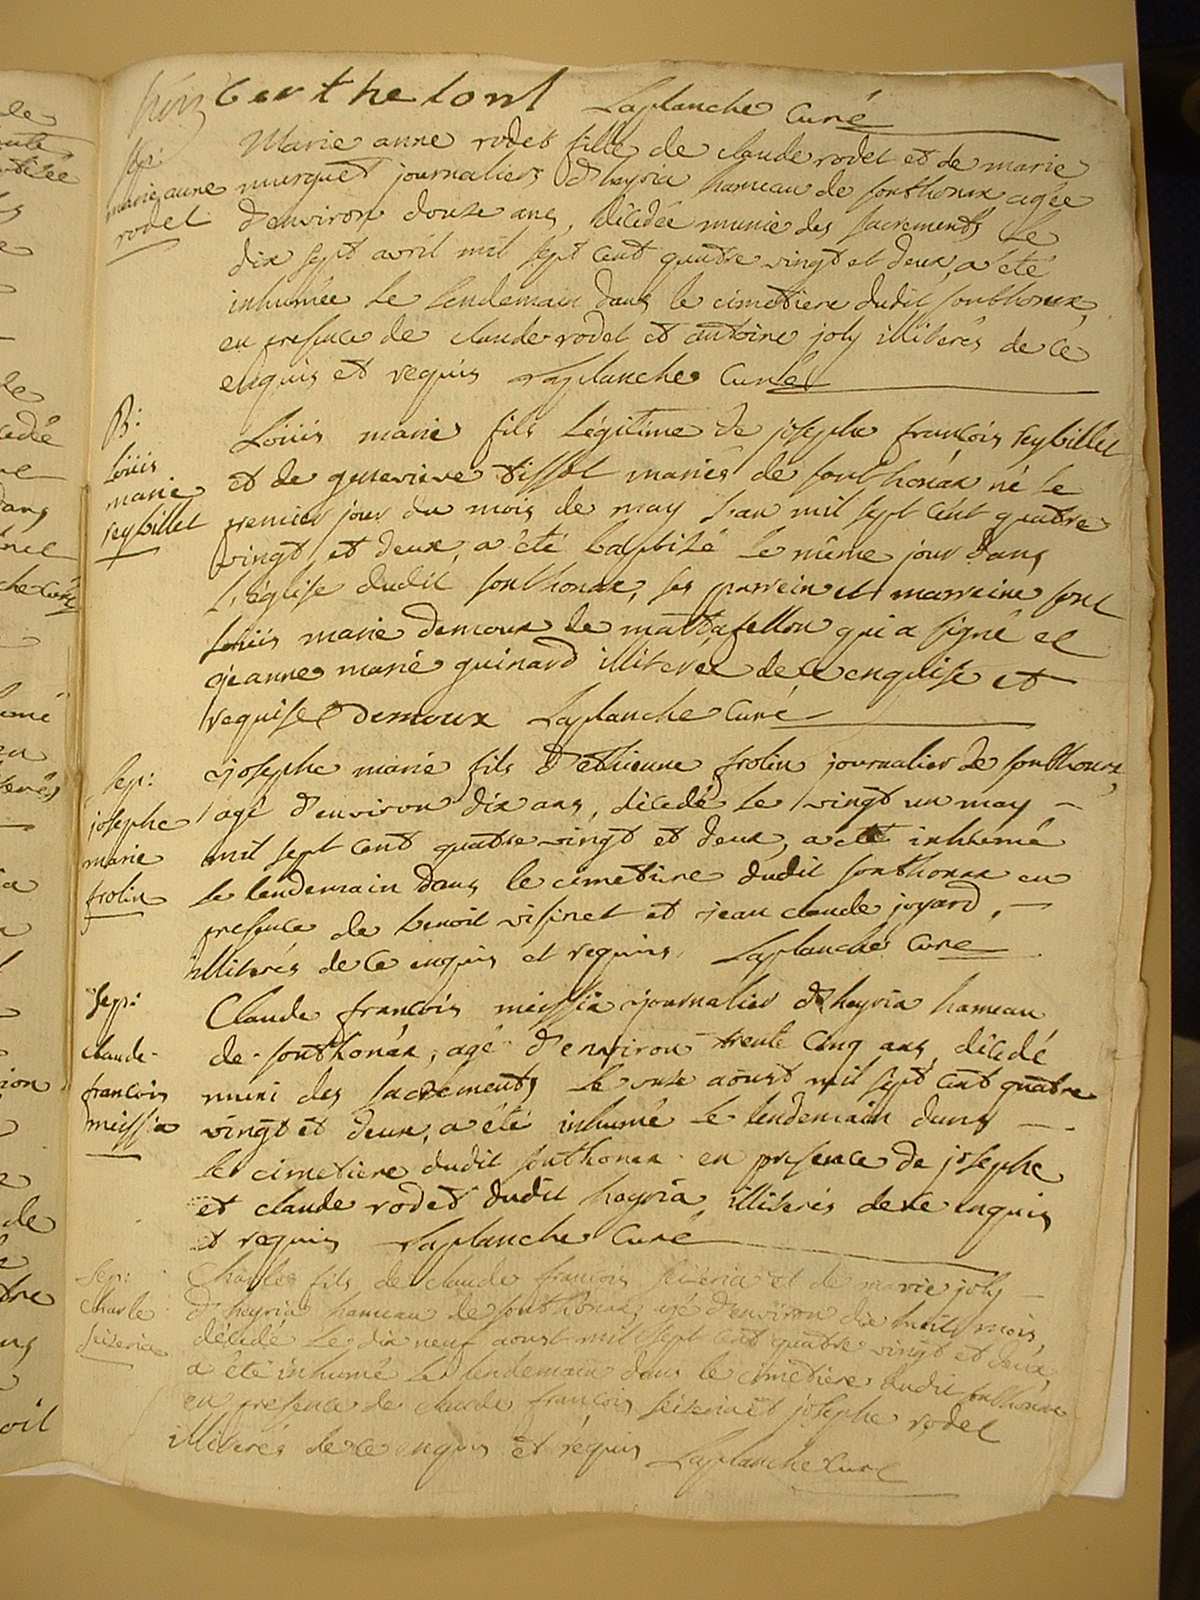 berthelont Laplanche Curé
Sep:
marie anne
rodet
Marie anne rodet fille de claude rodet et de marie
murquet journaliers d'heyria hameau de sonthonax agée
d'environ douze ans, décédée munie des sacrements Le
dix sept avril mil sept cent quatre vingt et deux, a été
inhumée Le Lendemain dans le cimetiere dudit sonthonax,
en presence de claude rodet et antoine joly illiterés de ce
enquis et requis Laplanche Curé
B:
Loüis
marie
reybillet
Loüis marie fils Légitime de josephe françois reybillet
et de genevieve tissot mariés de sonthonax né Le
premier jour du mois de may L'an mil sept cent quatre
vingt et deux, a été baptisé Le même jour dans
L'église dudit sonthonax, ses parrein et marreine sont
Loüis marie demoux de mattafellon qui a signé et
jeanne marie guinard illiterée de ce enquise et
requise Demoux Laplanche Curé
Sep:
josephe
marie
frolin
josephe marie fils d'ethienne frolin journalier de sonthonax,
agé d'environ dix ans, décedé Le vingt un may
mil sept cent quatre vingt et deux, a été inhumé
Le lendemain dans le cimetiere dudit sonthonax en
presence de benoit visinet et jean claude joyard,
illiterés de ce enquis et requis. Laplanche Curé
Sep:
claude
francois
meissia
Claude françois meissia journalier d'heyria hameau
de sonthonax, agé d'environ trente cinq ans, décedé
muni des sacrements Le onze aoust mil sept cent quatre
vingt et deux, a été inhumé Le lendemain dans
le cimetiere dudit sonthonax en presence de josephe
et claude rodet dudit heyria, illiterés de ce enquis
et requis Laplanche Curé
Sep:
Charle
seizeria
Charles fils de claude françois seizeria et de marie joly
d'heyria hameau de sonthonax, agé d'environ dix huit mois,
décedé Le dix neuf aoust mil sept cent quatre vingt et deux
a été inhumé Le lendemain dans le cimetiere dudit sonthonax
en presence de claude françois seizeria et josephe rodet
illiterés de ce enquis et requis Laplanche Curé